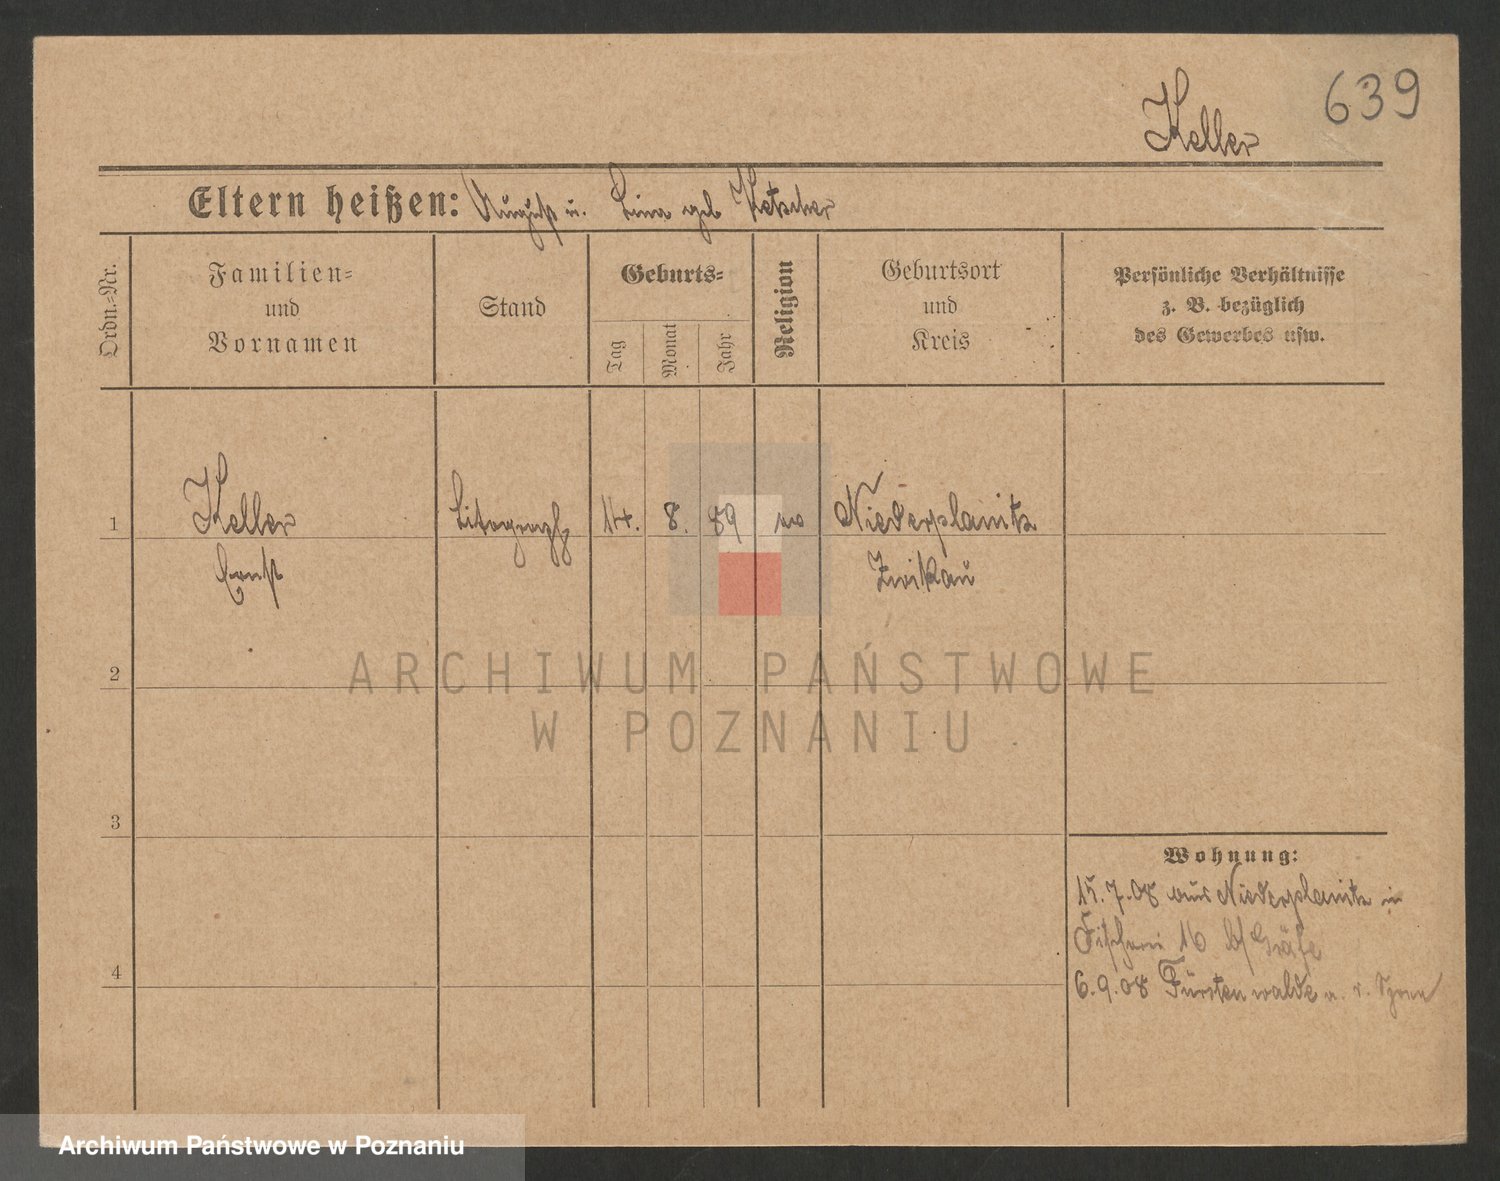 639
Keller
Eltern heißen: August u. Lina geb Ketscher
Ordn.-Nr.
Familien-
und
Vornamen
Stand
Geburts-
Tag
Monat
Jahr
Religion
Geburtsort
und
Kreis
Persönliche Verhältnisse
z. B. bezüglich
des Gewerbes usw.
1
Keller
Ernst
Litograph
14.
8.
89
ev
Niederplanitz
Zwikau
2
ARCHIWUM PAŃSTWOWE
W POZNANIU
3
4
Wohnung:
15.7.08 aus Niederplanitz in
Fischerei 16 b/ Gräfe
6.9.08 Fürstenwalde a. r. Spree
Archiwum Państwowe w Poznaniu